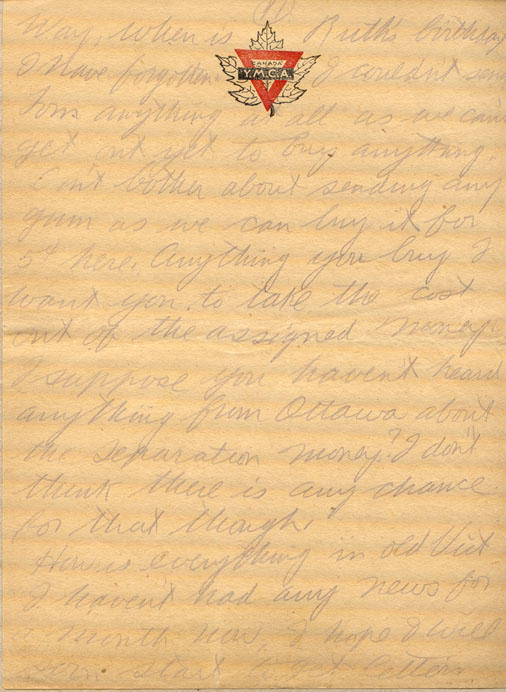 way, when is Ruth's birthday
CANADA
Y.M.C.A.
I have forgotten. I couldn't send
Tom anything at all as we can't
get out yet to buy anything.
Don't bother about sending any
gum as we can buy it for
5¢ here. Anything you buy I
want you to take the cost
out of the assigned money.
I suppose you haven't heard
anything from Ottawa about
the separation money? I don't
think there is any chance
for that though.
How is everything in old Vict
I haven't had any news for
a month now, I hope I will
soon start to get letters